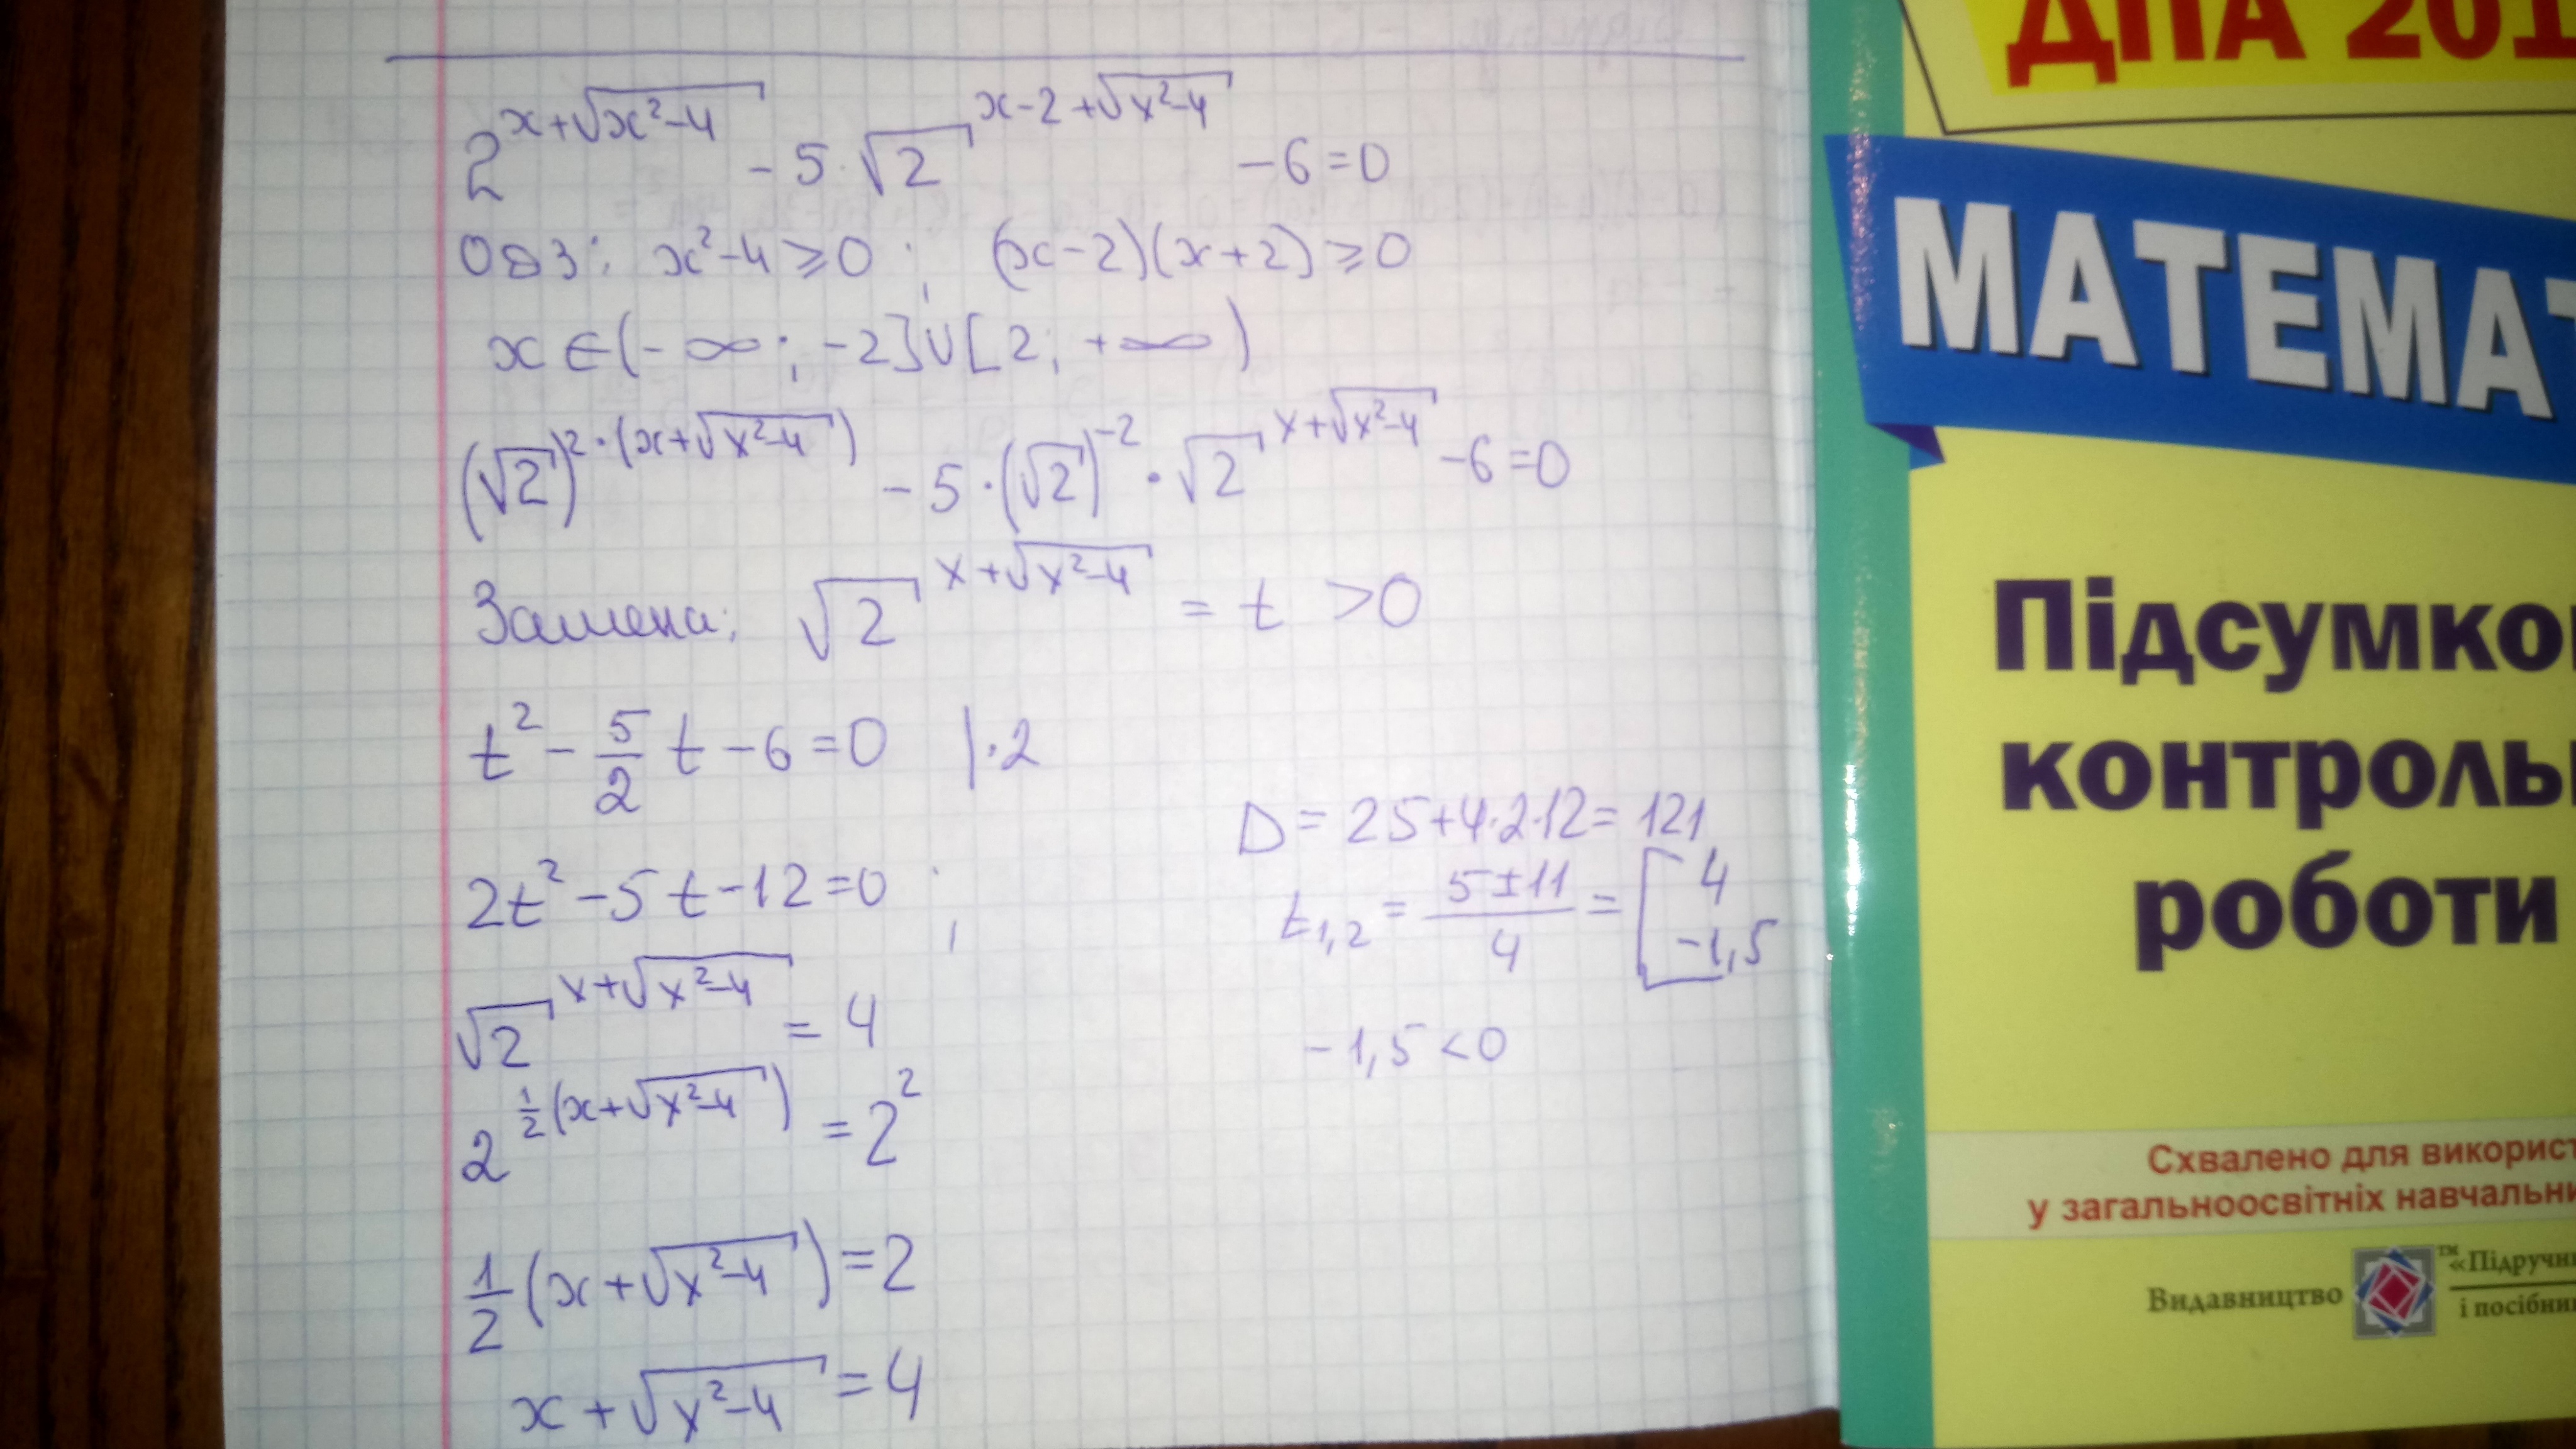 2^{x+√(x²-4)} - 5·√2^{x-2+√(x²-4)} - 6 = 0
ОДЗ: x²-4 ≥ 0 ; (x-2)(x+2) ≥ 0
x ∈ (-∞; -2] ∪ [2; +∞)
(√2)^{2·(x+√(x²-4))} - 5·(√2)^{-2}·√2^{x+√(x²-4)} - 6 = 0
Замена: √2^{x+√(x²-4)} = t > 0
t² - 5/2 t - 6 = 0 |·2
2t² - 5t - 12 = 0 ;
D = 25+4·2·12 = 121
t_{1,2} = (5±11)/4 = [4
-1,5
-1,5 < 0
√2^{x+√(x²-4)} = 4
2^{1/2(x+√(x²-4))} = 2²
1/2(x+√(x²-4)) = 2
x+√(x²-4) = 4
ДПА 201
МАТЕМАТ
Підсумко
контроль
роботи
Схвалено для використ
у загальноосвітніх навчальни
Видавництво
™ «Підручни
і посібни